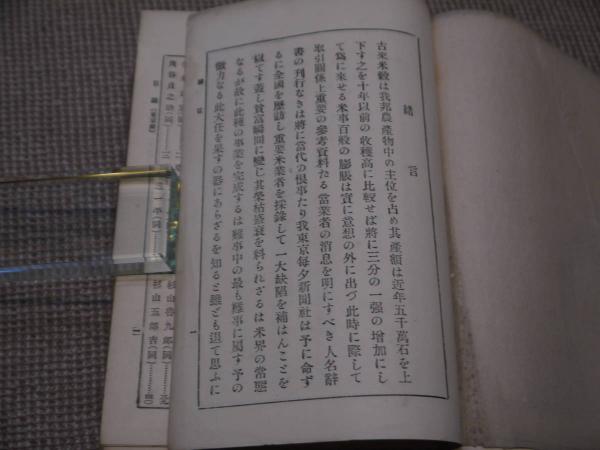 緒言
古來米穀は我邦農產物中の主位を占め其產額は近年五千萬石を上
下す之を十年以前の收穫高に比較せば將に三分の一强の增加にし
て爲に來せる米事百般の膨脹は實に意想の外に出づ此時に際して
取引關係上重要の參考資料たる當業者の消息を明にすべき人名辭
書の刊行なきは將に當代の恨事たり我東京每夕新聞社は予に命ず
るに全國を歷訪し重要米業者を採錄して一大缺陷を補はんことを
以てす蓋し貧富瞬間に變じ其榮枯盛衰を料られざるは米界の常態
なるが故に此種の事業を完成するは難事中の最も難事に屬す予の
微力なる此大任を果すの器にあらざるを知ると雖ども退て思ふに
緒言
一
杉山喜九郞(同)
杉山五郞吉(同)
二
目錄